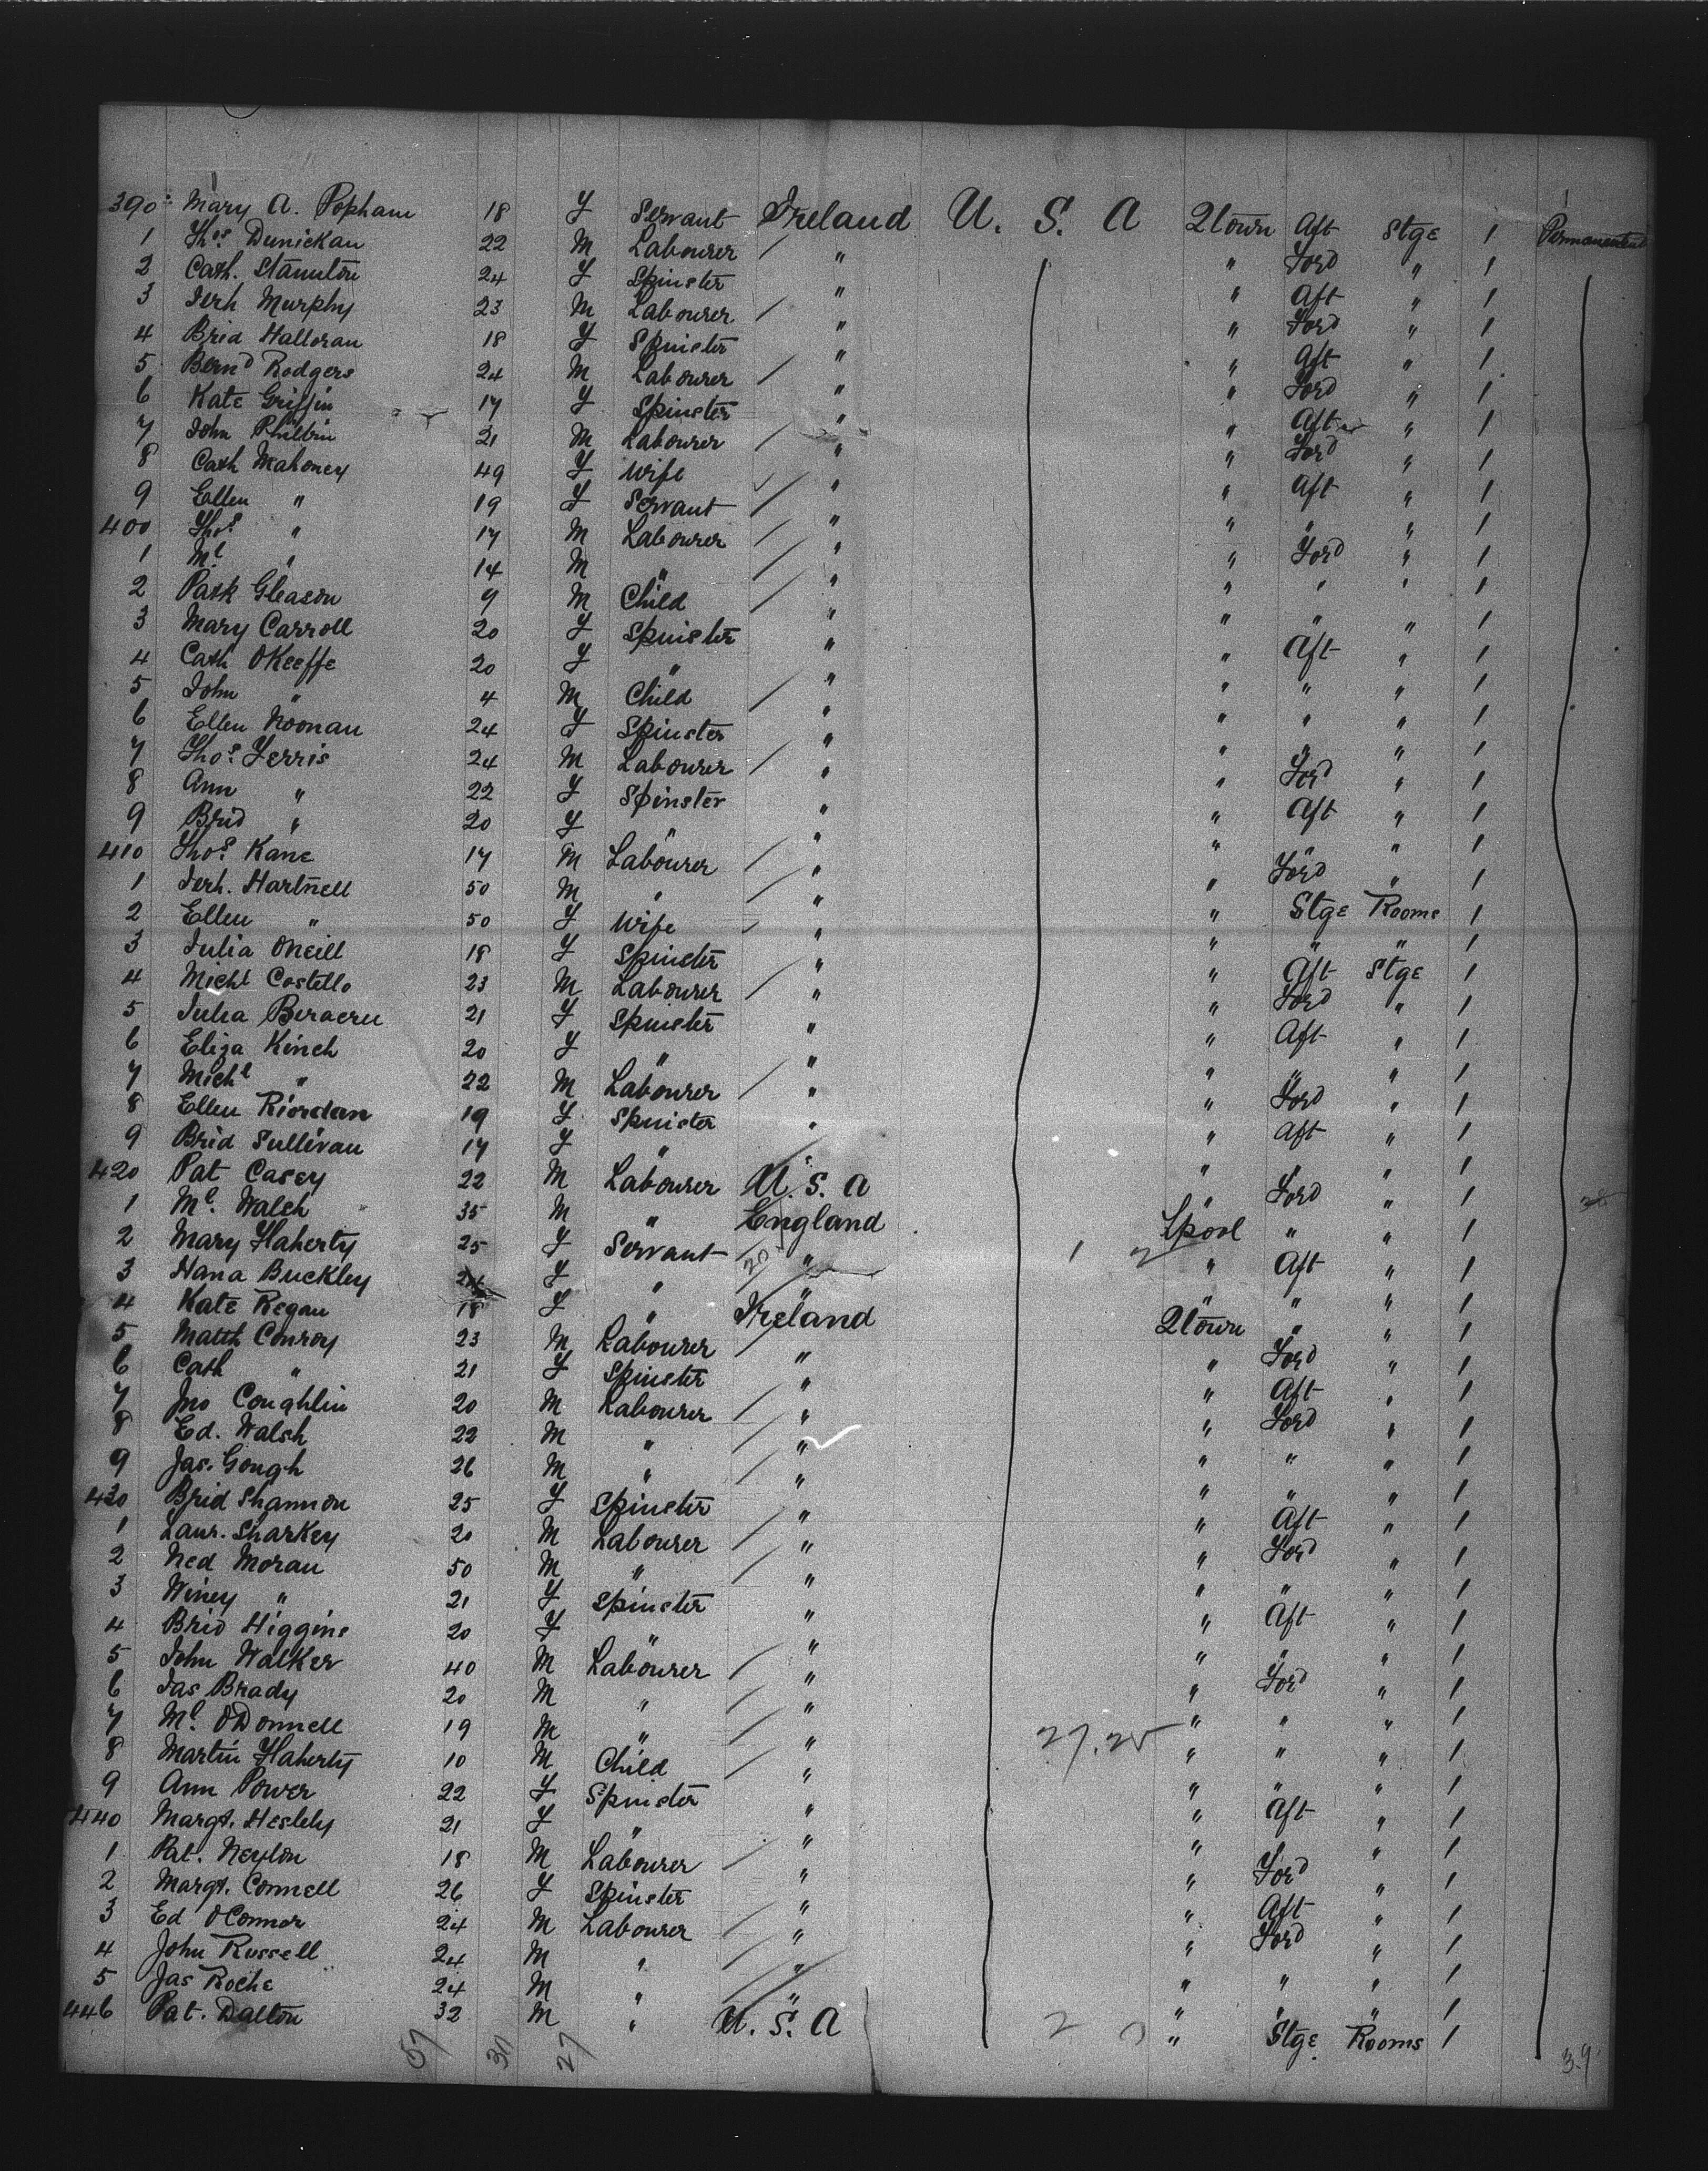 390 Mary A. Popham 18 F Servant Ireland U. S. A Qtown Aft Stge 1 Permanent
1 Thos Dunickan 22 M Labourer / " " Ford " 1
2 Cath. Staunton 24 F Spinster " " Aft " 1
3 Jerh Murphy 23 M Labourer / " " Ford " 1
4 Brid Halloran 18 F Spinster " " Aft " 1
5 Bernd Rodgers 24 M Labourer / " " Ford " 1
6 Kate Griffin 17 F Spinster " " Aft " 1
7 John Philbin 21 M Labourer / " " Ford " 1
8 Cath Mahoney 49 F Wife " " Aft " 1
9 Ellen " 19 F Servant / " " " " 1
400 Thos " 17 M Labourer / " " Ford " 1
1 Ml " 14 M " / " " " " 1
2 Patk Gleason 9 M Child / " " " " 1
3 Mary Carroll 20 F Spinster " " Aft " 1
4 Cath OKeeffe 20 F " " " " " 1
5 John " 4 M Child / " " " " 1
6 Ellen Noonan 24 F Spinster " " " " 1
7 Thos Ferris 24 M Labourer / " " Ford " 1
8 Ann " 22 F Spinster " " Aft " 1
9 Brid " 20 F " " " " " 1
410 Thos Kane 17 M Labourer / " " Ford " 1
1 Jerh. Hartnell 50 M " / " " Stge Rooms 1
2 Ellen " 50 F Wife " " " " 1
3 Julia ONeill 18 F Spinster " " Aft Stge 1
4 Michl Costello 23 M Labourer / " " Ford " 1
5 Julia 21 F Spinster " " Aft " 1
6 Eliza Kinch 20 F " " " " " 1
7 Michl " 22 M Labourer / " " Ford " 1
8 Ellen Riordan 19 F Spinster " " Aft " 1
9 Brid Sullivan 17 F " " " " " 1
420 Pat Casey 22 M Labourer U. S. A " Ford " 1
1 Ml. Walsh 35 M " England Lpool " " 1
2 Mary Flaherty 25 F Servant 20 " 1 2 " Aft " 1
3 Hana Buckley 24 F " " " " " 1
4 Kate Regan 18 F " Ireland Qtown " " 1
5 Matth Conroy 23 M Labourer / " " Ford " 1
6 Cath " 21 F Spinster " " Aft " 1
7 Jno Coughlin 20 M Labourer / " " Ford " 1
8 Ed. Walsh 22 M " / " " " " 1
9 Jas. Gough 26 M " / " " " " 1
430 Brid Shannon 25 F Spinster " " Aft " 1
1 Laur. Sharkey 20 M Labourer / " " Ford " 1
2 Ned Moran 50 M " / " " " " 1
3 Winey " 21 F Spinster " " Aft " 1
4 Brid Higgins 20 F " " " " " 1
5 John Walker 40 M Labourer / " " Ford " 1
6 Jas Brady 20 M " / " " " " 1
7 Ml. ODonnell 19 M " / " 27.25 " " " 1
8 Martin Flaherty 10 M Child / " " " " 1
9 Ann Power 22 F Spinster " " Aft " 1
440 Margt. 21 F " " " " " 1
1 Pat. Neylon 18 M Labourer / " " Ford " 1
2 Margt. Connell 26 F Spinster " " Aft " 1
3 Ed OConnor 24 M Labourer / " " Ford " 1
4 John Russell 24 M " / " " " " 1
5 Jas Roche 24 M " / " " " " 1
446 Pat. Dalton 32 M " U. S. A 2 " Stge Rooms 1
57 30 27 39